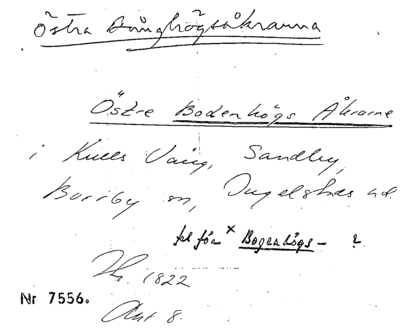 Östra Bånghögsåkrarna
Östre Bodenhögs Åkrarne
i Kulls Vång, Sandby,
Borrby sn, Ingelstads hd.
fel för × Bogenhögs - ?
1822
Nr 7556.
Akt 8.